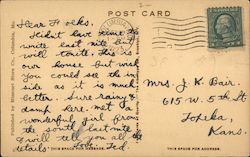 POST CARD
Dear Folks.
Didn't have time to
write last nite but
will tonite. This is
our house but wish
you could see the in
side as it is much
better. Sure rainy &
damp here. met a
wonderful girl from
the south last nite
& will tell you all
details. Love. Ted.
Mrs. J. K. Bair.
615 W. 5th St
Topeka,
Kans.
THIS SPACE FOR MESSAGE.
THIS SPACE FOR ADDRESS.
Published by Missouri Store Co., Columbia, Mo.